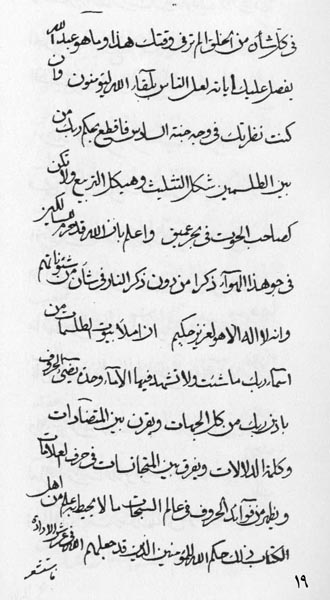 فى كل شأن من الخلق الم ترف وقتك هذا وما هو عبد الله
يفصل عليك اياته لعل الناس بلقاء الله ليؤمنون وان
كنت نظرتك فى وجه جنة السادس فاقطع بحكم ربك من
بين الطلسمين شكل التثليث وهيكل التربيع ولا تكن
كصاحب الحوت فى بحر عميق واعلم بان الله قد حرم للكبر
فى جو هذا الهواء ذكرا من دون ذكر النار فى شأن من شئوناتهم
وانه لا اله الا هو لعزيز حكيم ان املأ بيوت الطلسمات من
اسماء ربك ما شئت ولا تشهد فيها الا مآء وحدت الحروف
باذن ربك من كل الجهات ويقرن بين المتضادات
وكلمة الدلالات ويفرق بين المتجانسات فى حرف العلامات
ويظهر من فوآئد الحروف فى عالم السبحات ما لا يحيط بعلم من اهل
الكتاب ذلك حكم الله للمؤمنين الذين قد جعلهم الله فى عرش الارادة
١٩